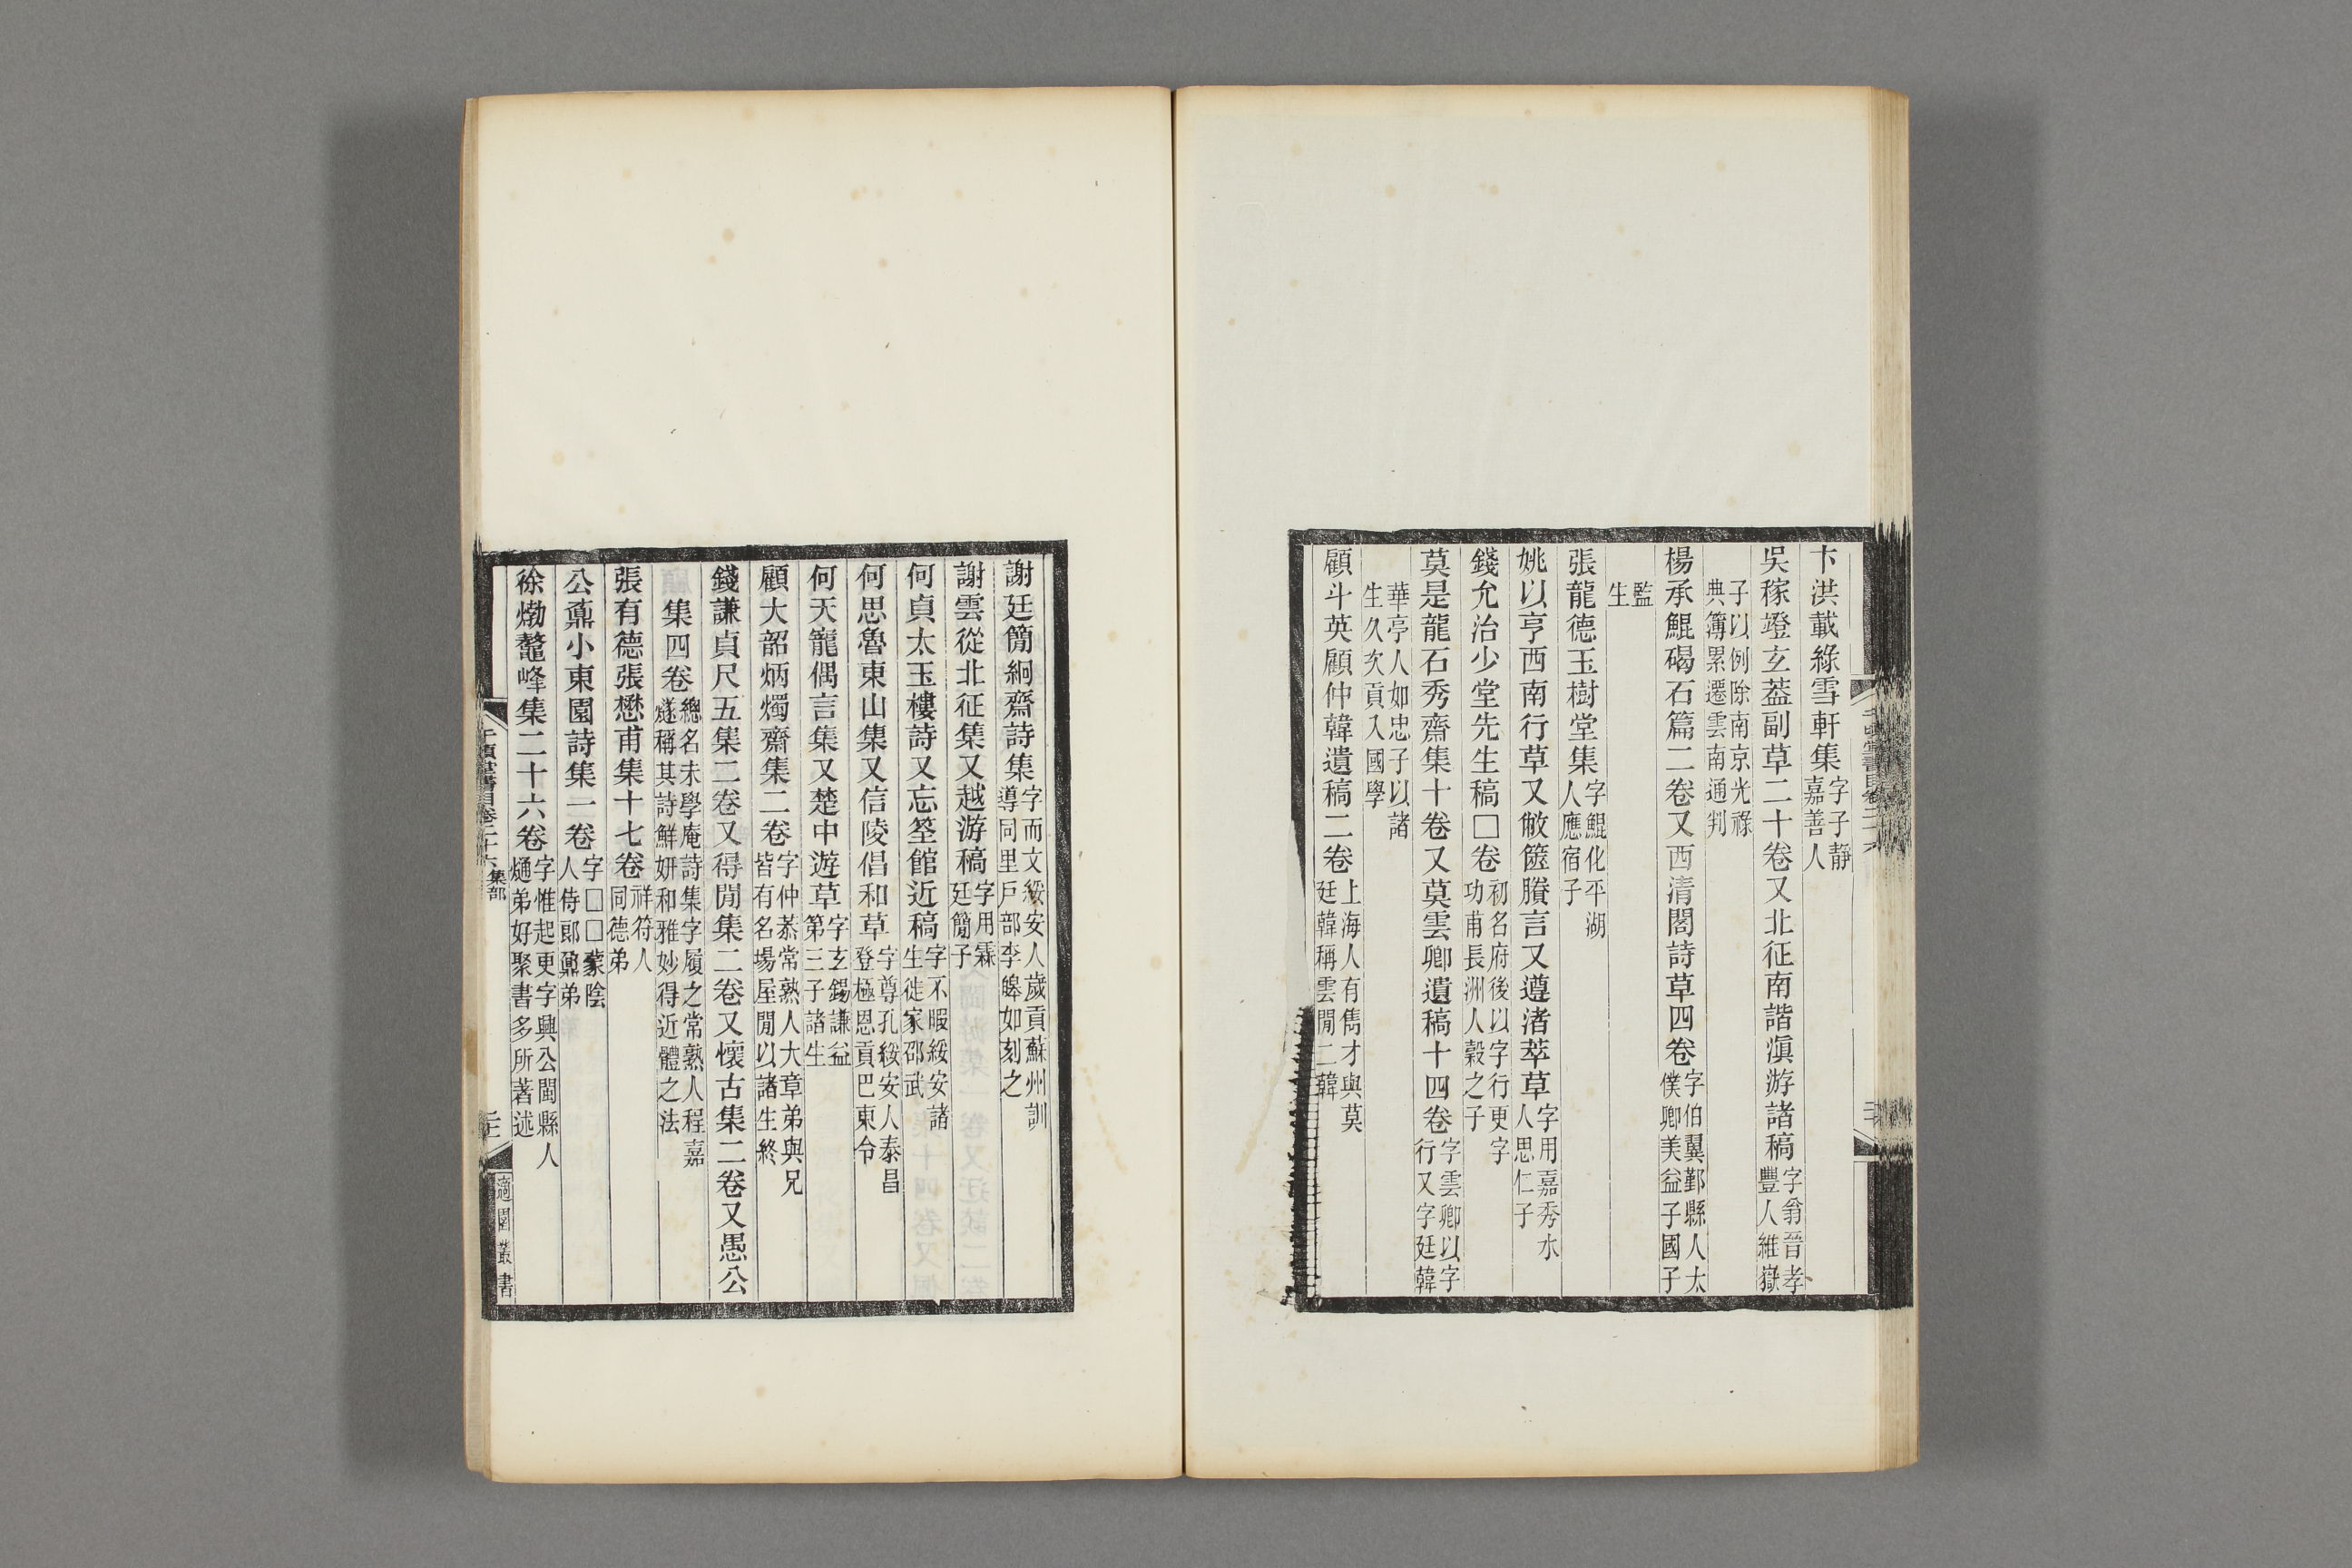 卞洪載綠雪軒集字子靜嘉善人
吳稼竳玄葢副草二十卷又北征南諧滇游諸稿字翁晉孝豐人維嶽
子以例除南京光祿典簿累遷雲南通判
楊承鯤碣石篇二卷又西清閣詩草四卷字伯翼鄞縣人太僕卿美益子國子
監生
張龍德玉樹堂集字鯤化平湖人應宿子
姚以亨西南行草又敝篋賸言又遵渚萃草字用嘉秀水人思仁子
錢允治少堂先生稿□卷初名府後以字行更字功甫長洲人穀之子
莫是龍石秀齋集十卷又莫雲卿遺稿十四卷字雲卿以字行又字廷韓
華亭人如忠子以諸生久次貢入國學
顧斗英顧仲韓遺稿二卷上海人有雋才與莫廷韓稱雲間二韓
謝廷簡絅齋詩集字而文綏安人歲貢蘇州訓導同里戶部李嶧如刻之
謝雲從北征集又越游稿字用霖廷簡子
何貞太玉樓詩又忘筌館近稿字不暇綏安諸生徙家邵武
何思魯東山集又信陵倡和草字尊孔綏安人泰昌登極恩貢巴東令
何天寵偶言集又楚中遊草字玄錫謙益第三子諸生
顧大韶炳燭齋集二卷字仲恭常熟人大章弟與兄皆有名場屋間以諸生終
錢謙貞尺五集二卷又得閒集二卷又懷古集二卷又愚公
集四卷總名未學庵詩集字履之常熟人程嘉燧稱其詩鮮妍和雅妙得近體之法
張有德張懋甫集十七卷祥符人同德弟
公鼐小東園詩集一卷字□□蒙陰人侍郎鼐弟
徐𤊹鼇峰集二十六卷字惟起更字興公閩縣人熥弟好聚書多所著述
千頃堂書目卷二十六 集部
適園叢書